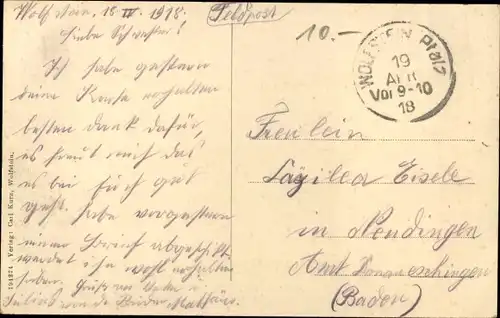 Wolfstein, 18 IV. 1918.
Feldpost
10.-
Liebe Schwester!
Ich habe gestern
deine Karte erhalten
besten dank dafür,
es freut mich das
es bei Euch gut
geht. habe vorgestern
einen Brief abgeschikt
werdet ihn wohl erhalten
haben. Grüße an
Bruder Mathäus.
WOLFSTEIN Pfalz
19
APR
Vor 9-10
18
Freulein
Cäzilea Eisele
in Neudingen
Amt Donaueschingen
(Baden)
191874 Verlag: Carl Kurz, Wolfstein.